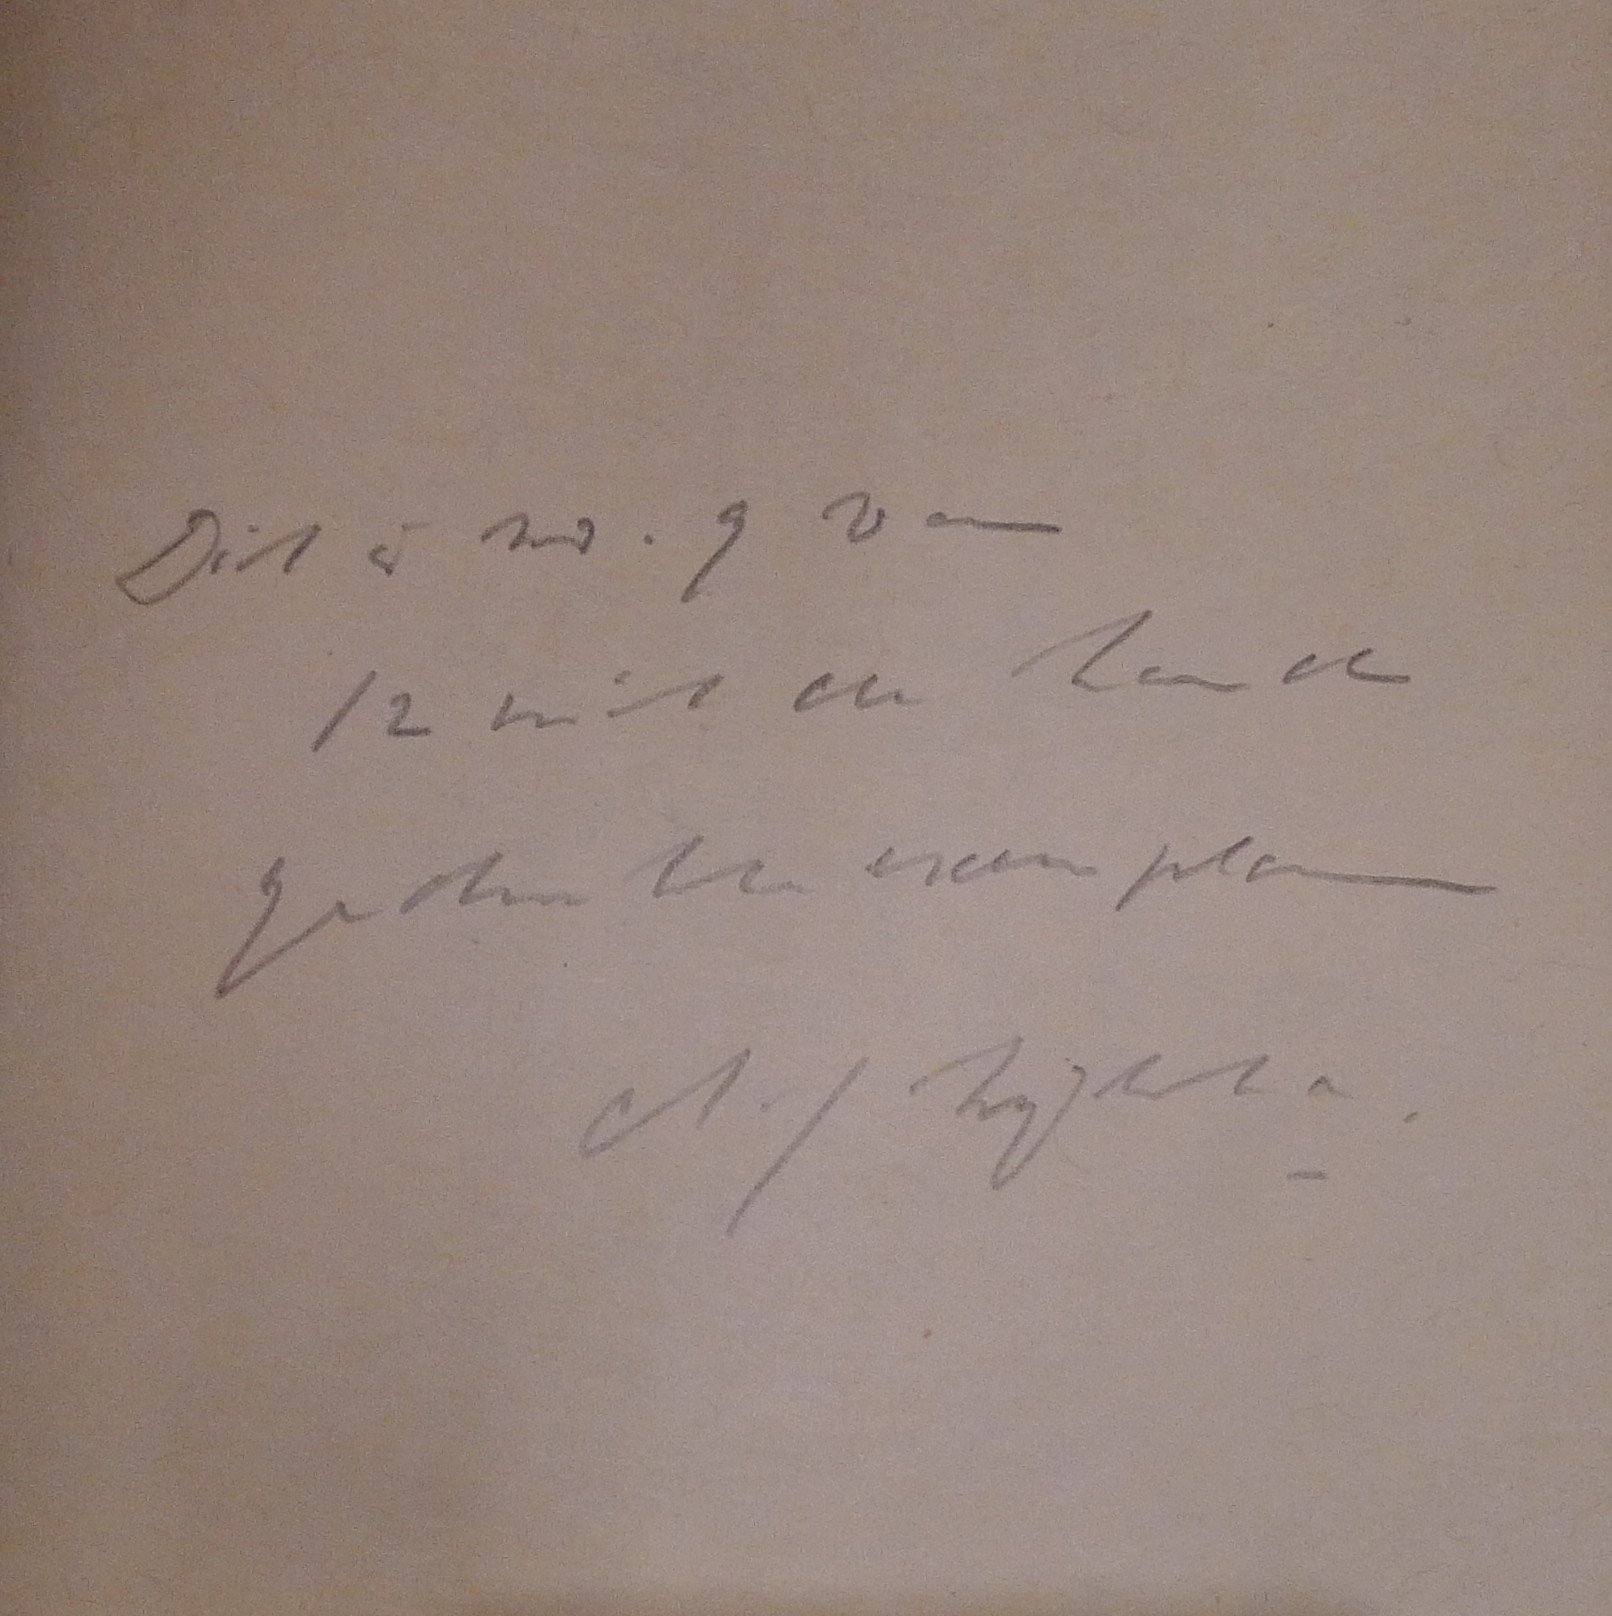 Dit is no. 9 van
12 met de hand
gedrukte exemplaren